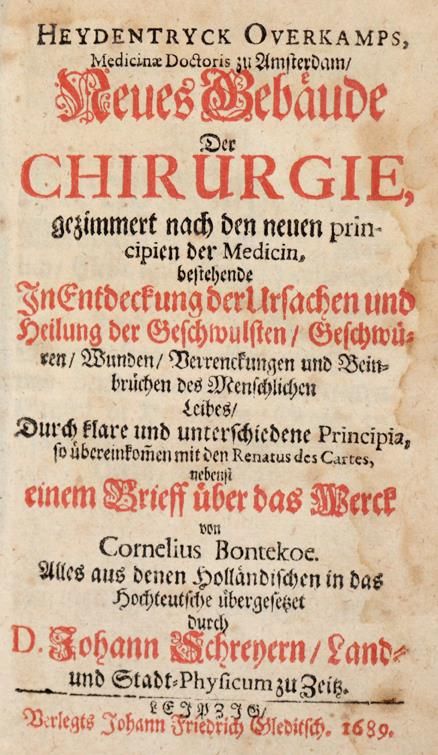 HEYDENTRYCK OVERKAMPS,
Medicinæ Doctoris zu Amsterdam/
Neues Gebäude
Der
CHIRURGIE,
gezimmert nach den neuen prin-
cipien der Medicin,
bestehende
In Entdeckung der Ursachen und
Heilung der Geschwulsten / Geschwü-
ren/ Wunden/ Verrenckungen und Bein-
brüchen des Menschlichen
Leibes/
Durch klare und unterschiedene Principia,
so übereinkom̃en mit den Renatus des Cartes,
nebenst
einem Brieff über das Werck
von
Cornelius Bontekoe.
Alles aus denen Holländischen in das
Hochteutsche übergesetzet
durch
D. Johann Schreyern / Land-
und Stadt-Physicum zu Zeitz.
LEIPZIG/
Verlegts Johann Friedrich Gleditsch. 1689.